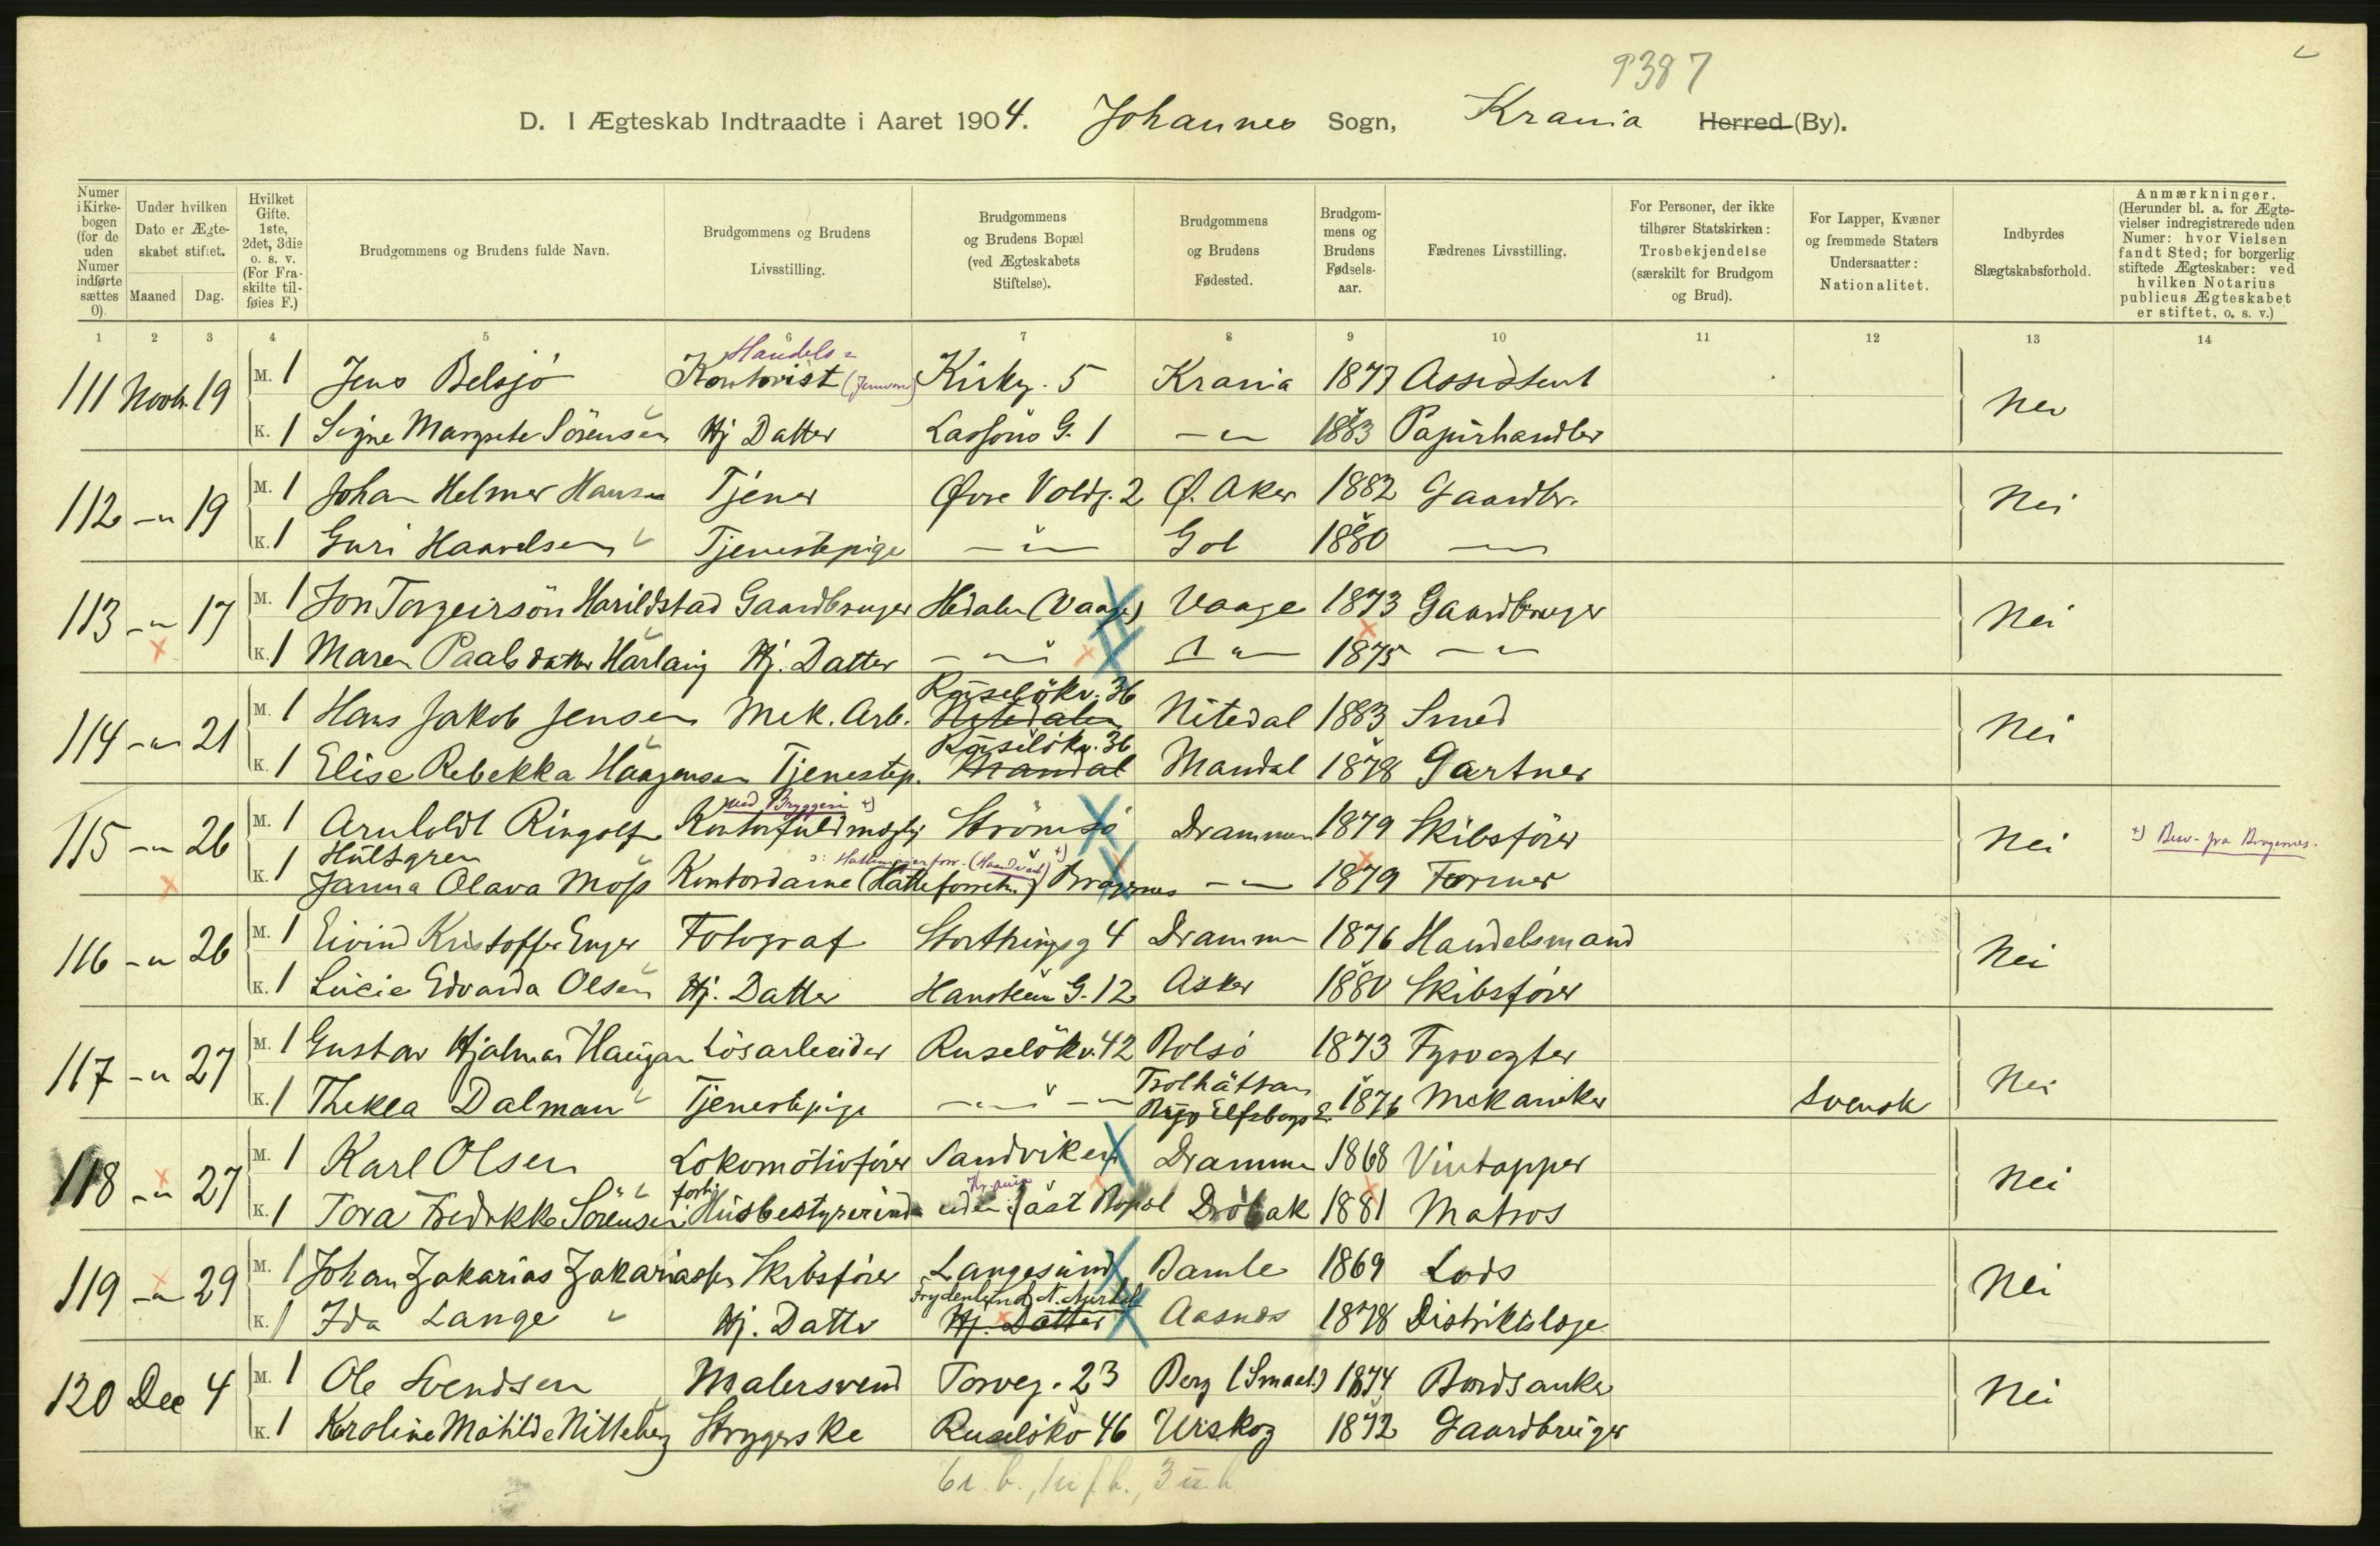 9387
D. I Ægteskab Indtraadte i Aaret 1904. Johannes Sogn, Krania Herred (By).
Numer i Kirkebogen (for de uden Numer indførte sættes 0).
Under hvilken Dato er Ægteskabet stiftet.
Maaned Dag.
Hvilket Gifte. 1ste, 2det, 3die o. s. v. (For Fraskilte tilføies F.)
Brudgommens og Brudens fulde Navn.
Brudgommens og Brudens Livsstilling.
Brudgommens og Brudens Bopæl (ved Ægteskabets Stiftelse).
Brudgommens og Brudens Fødested.
Brudgommens og Brudens Fødselsaar.
Fædrenes Livsstilling.
For Personer, der ikke tilhører Statskirken: Trosbekjendelse (særskilt for Brudgom og Brud).
For Lapper, Kvæner og fremmede Staters Undersaatter: Nationalitet.
Indbyrdes Slægtskabsforhold.
Anmærkninger. (Herunder bl. a. for Ægtevielser indregistrerede uden Numer: hvor Vielsen fandt Sted; for borgerlig stiftede Ægteskaber: ved hvilken Notarius publicus Ægteskabet er stiftet, o. s. v.)
1 2 3 4 5 6 7 8 9 10 11 12 13 14
Handels=
111 Novbr. 19 M. 1 Jens Belsjö Kontorist Kirkg. 5 Krania 1877 Assistent Nei
K. 1 Signe Margrete Sörensen Hj Datter Lassons G. 1 —"— 1883 Papirhandler
112 —"— 19 M. 1 Johan Helmer Hansen Tjener Øvre Voldg. 2 Ø. Aker 1882 Gaardbr. Nei
K. 1 Guri Haavelsen Tjenestepige —"— Gol 1880 —"—
113 —"— 17 M. 1 Jon Torgeirsön Harildstad Gaardbruger Hedalen (Vaage) Vaage 1873 Gaardbruger Nei
K. 1 Maren Paalsdatter Hj. Datter —"— —"— 1875 —"—
Ruselökv. 36
114 —"— 21 M. 1 Hans Jakob Jensen Mek. Arb. Nitedalen Nitedal 1883 Smed Nei
Ruselökv. 36
K. 1 Elise Rebekka Haagensen Tjenestep. Mandal Mandal 1878 Gartner
ved Bryggeri +)
115 —"— 26 M. 1 Arnholdt Ringolf Kontorfuldmægtig Strömsö Drammen 1879 Skibsförer Nei +) Bev. fra Bragernes.
Hultgren
K. 1 Janna Olava Moss Kontordame (Hatteforretn.) Bragernes —"— 1879 Former
116 —"— 26 M. 1 Eivind Kristoffer Enger Fotograf Storthingsg 4 Drammen 1876 Handelsmand Nei
K. 1 Lucie Edvarda Olsen Hj. Datter Hanstein G. 12 Asker 1880 Skibsförer
117 —"— 27 M. 1 Gustav Hjalmar Haugan Lösarbeider Ruselökv. 42 Bolsö 1873 Fyrvogter Nei
Trolhättan
K. 1 Thekla Dalman Tjenestepige —"— Elfsborgs 1876 Mekaniker Svensk
118 —"— 27 M. 1 Karl Olsen Lokomotivförer Sandviken Drammen 1868 Vintapper Nei
K. 1 Tora Fredrikke Sörensen Husbestyrerinde uden fast Bopæl Dröbak 1881 Matros
119 —"— 29 M. 1 Johan Zakarias Zakariassen Skibsförer Langesund Bamle 1869 Lods Nei
Frydenlund N. Aurdal
K. 1 Ida Lange Hj. Datter Hj. Datter Aasnes 1878 Distriktslæge
120 Dec 4 M. 1 Ole Svendsen Malersvend Torveg. 23 Berg (Smaal.) 1874 Nei
K. 1 Karoline Mathilde Nitteberg Strygerske Ruselökv 46 Urskog 1872 Gaardbruger